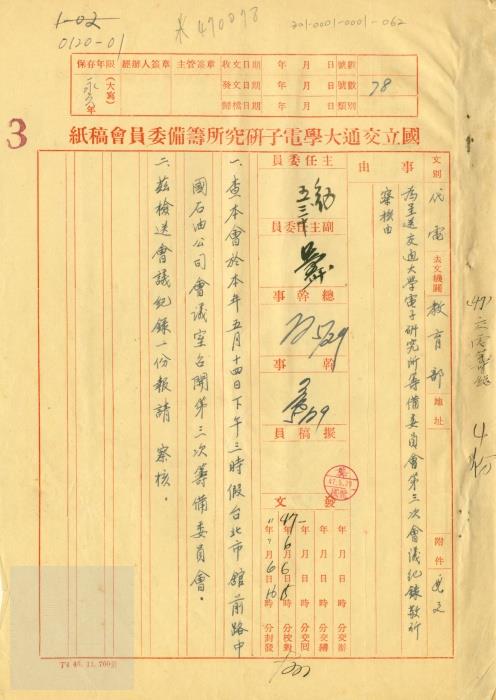 1-02
0120-01
470078
201-0001-0001-062
保存年限
(大寫)
永久年
經辦人簽章
主管簽章
收文日期 年 月 日
發文日期 年 月 日
歸檔日期 年 月 日
號數
號數 78
類別
3
國立交通大學電子研究所籌備委員會稿紙
文別 代電
去文機關 教育部
地址
附件 見文
事由
為呈送交通大學電子研究所籌備委員會第三次會議紀錄敬祈
察核由
主任委員
副主任委員
總幹事
幹事
擬稿員
47.5.29
發文
年 月 日 時 分交辦
年 月 日 時 分交繕
年 月 日 時 分交回
47年6月6日 時 分校對
年 月6日16時 分封發
一、查本會於本年五月十四日下午三時假台北市館前路中
國石油公司會議室召開第三次籌備委員會。
二、茲檢送會議紀錄一份報請 察核。
T4 46. 11. 700張